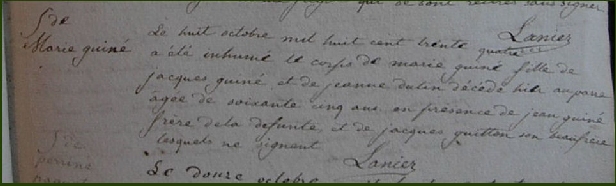 qui se sont retirés sans signer
Lanier
S de
Marie guiné
Le huit octobre mil huit cent trente quatre
a été inhumé le corps de marie guiné fille de
jacques guiné et de jeanne dutin décédé hier
agée de soixante cinq ans en présence de jean guiné
frère de la defunte et de jacques guitton son beaufrere
lesquels ne signent
Lanier
S de
perrine
Le douze octobre